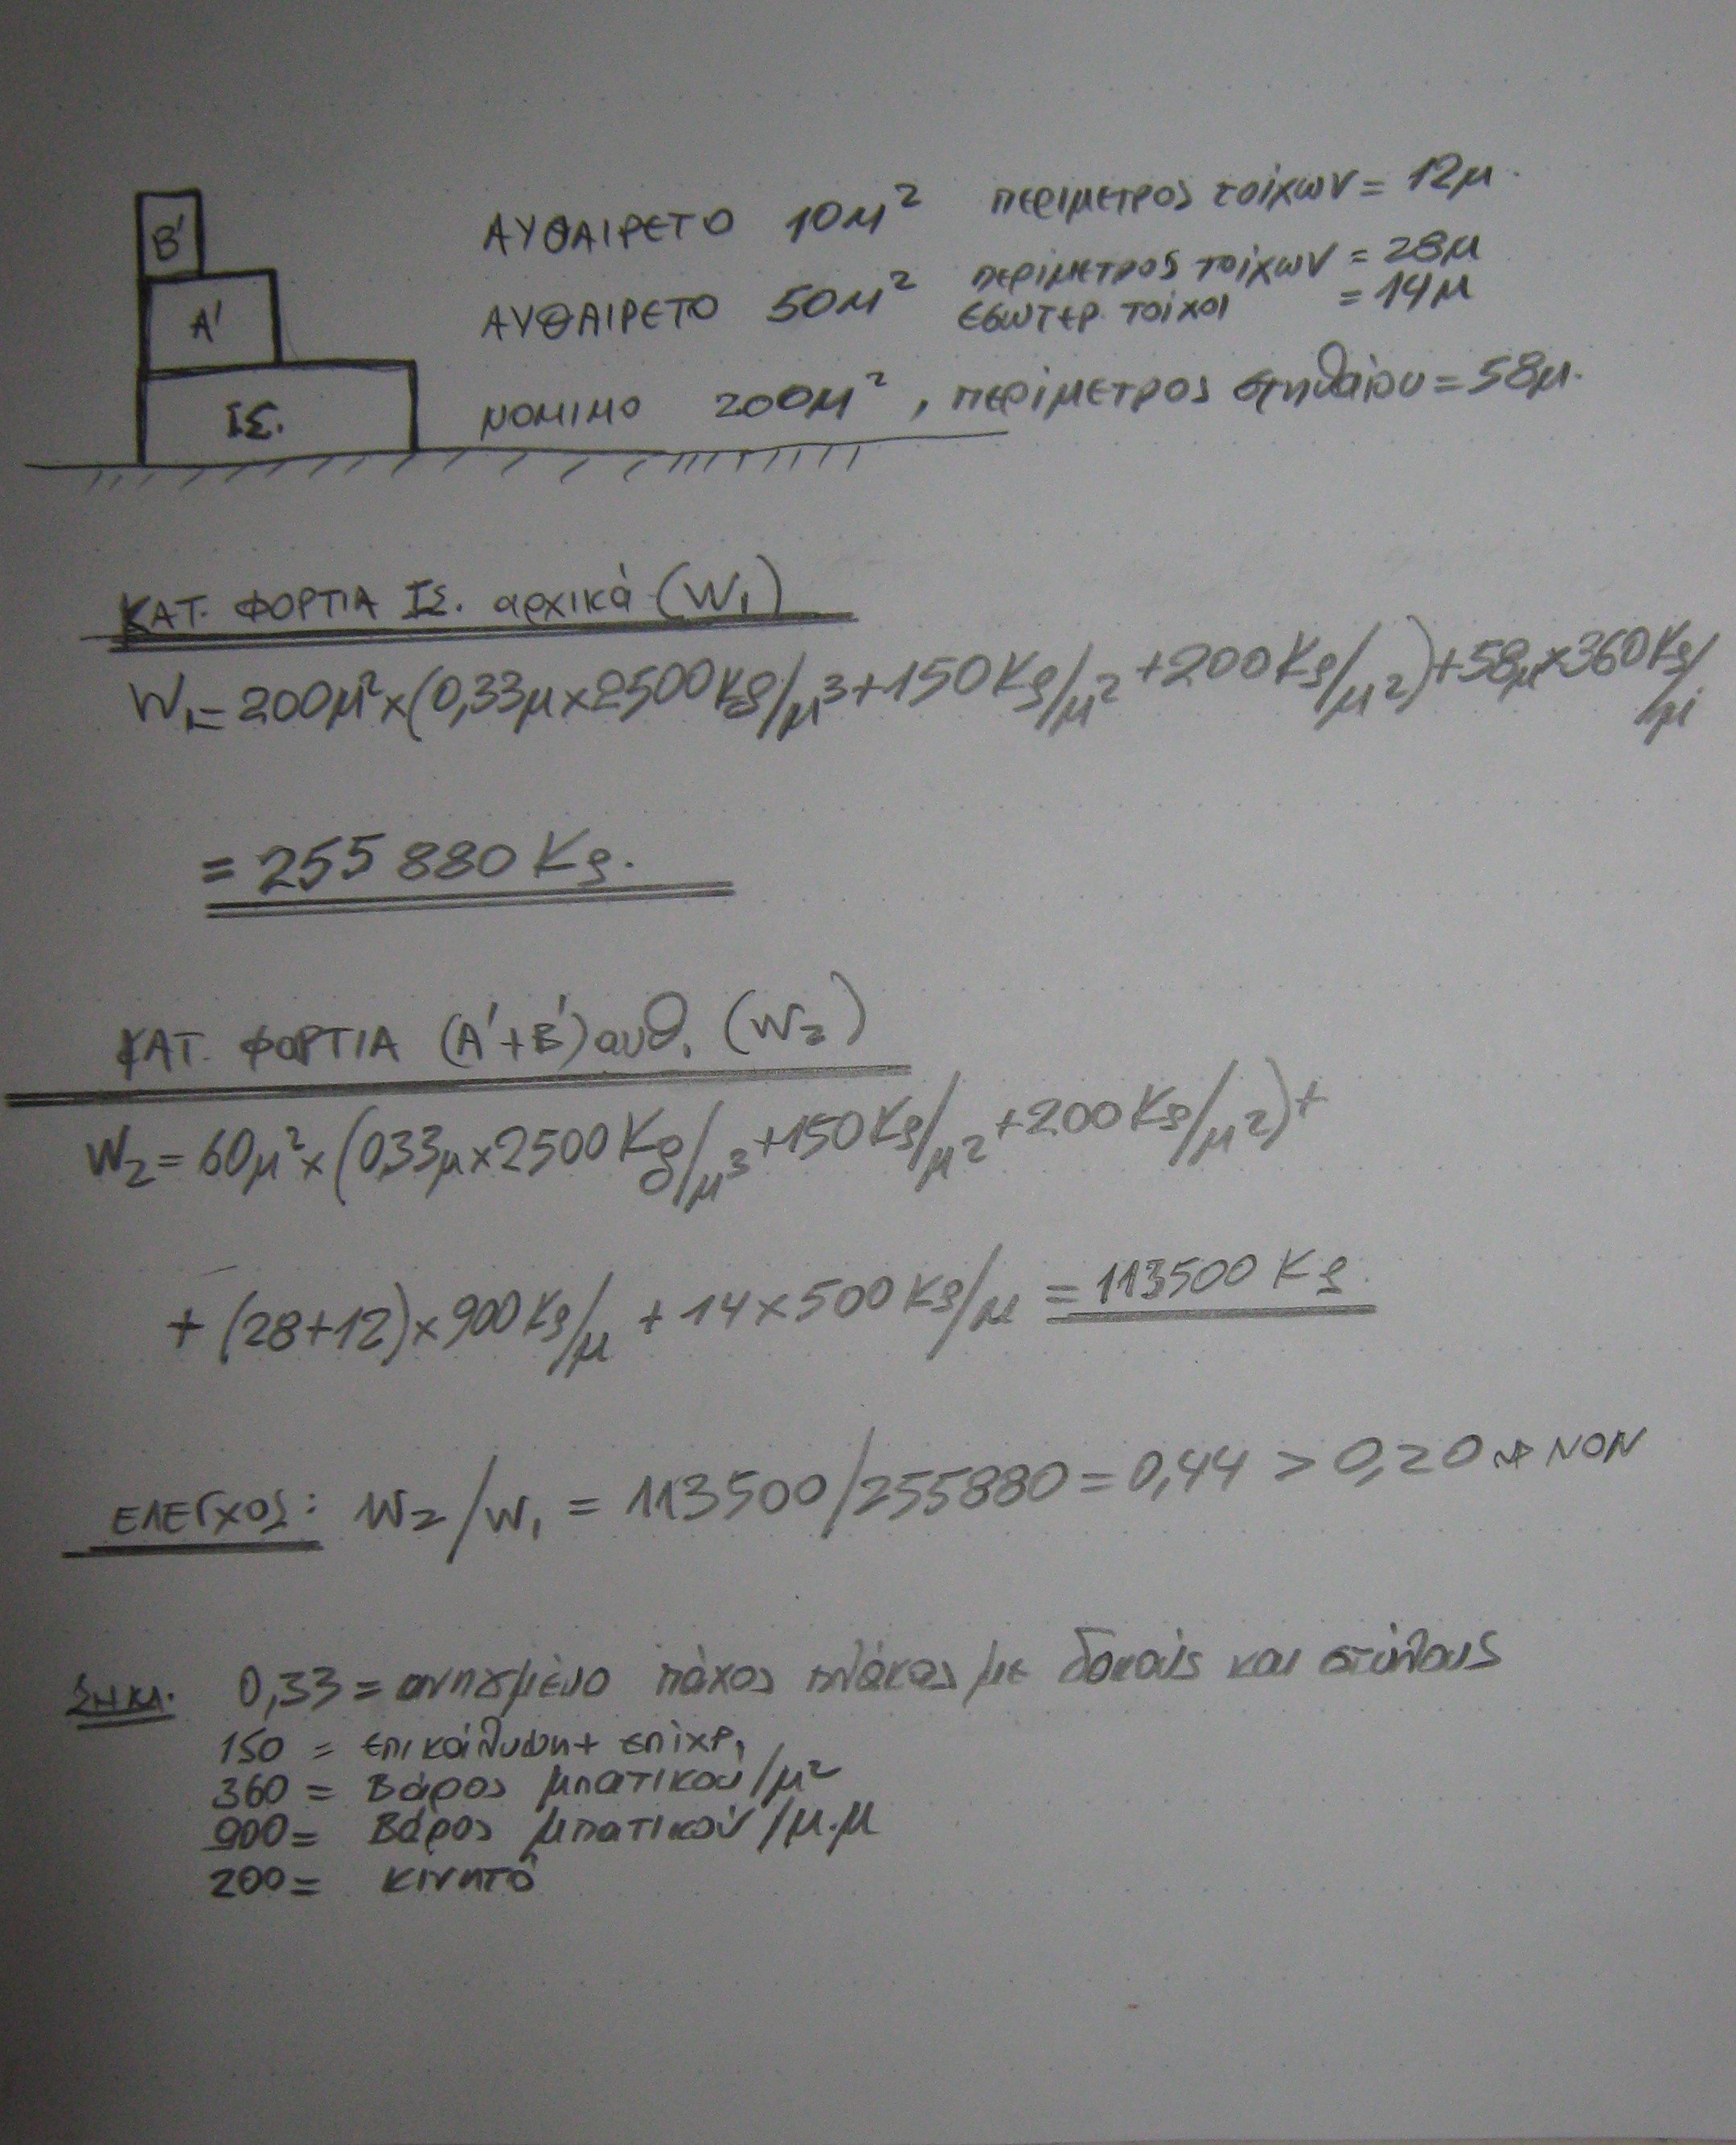 Β'
ΑΥΘΑΙΡΕΤΟ 10μ² περίμετρος τοίχων = 12μ.
Α'
ΑΥΘΑΙΡΕΤΟ 50μ² περίμετρος τοίχων = 28μ
εσωτερ. τοίχοι = 14μ
ΙΣ.
ΝΟΜΙΜΟ 200μ², περίμετρος στηθαίου = 58μ.
ΚΑΤ. ΦΟΡΤΙΑ ΙΣ. αρχικά (W₁)
W₁ = 200μ² × (0,33μ × 2500 Kg/μ³ + 150 Kg/μ² + 200 Kg/μ²) + 58μ × 360 Kg/μ
= 255 880 Kg.
ΚΑΤ. ΦΟΡΤΙΑ (Α'+Β') αυθ. (W₂)
W₂ = 60μ² × (0,33μ × 2500 Kg/μ³ + 150 Kg/μ² + 200 Kg/μ²) +
+ (28+12) × 900 Kg/μ + 14 × 500 Kg/μ = 113500 Kg.
ΕΛΕΓΧΟΣ: W₂/W₁ = 113500/255880 = 0,44 > 0,20 → NON
Σημ. 0,33 = ανηγμένο πάχος πλάκας με δοκούς και στύλους
150 = επικάλυψη + επίχρ.
360 = Βάρος μπατικού/μ²
900 = Βάρος μπατικού/μ.μ
200 = κινητό